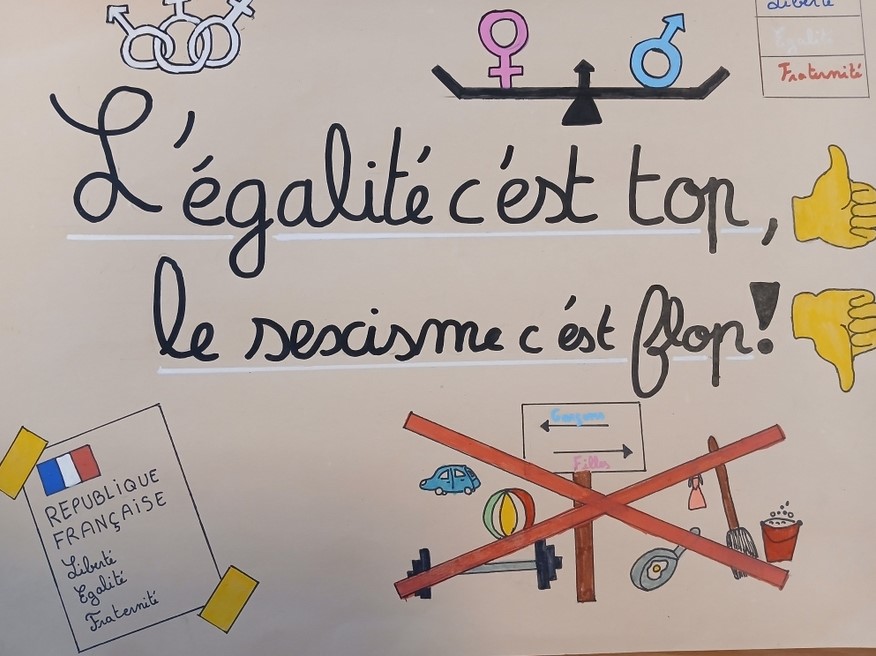 Liberté
Egalité
Fraternité
L'égalité c'est top,
le sexisme c'est flop!
Garçons
Filles
REPUBLIQUE
FRANÇAISE
Liberté
Egalité
Fraternité